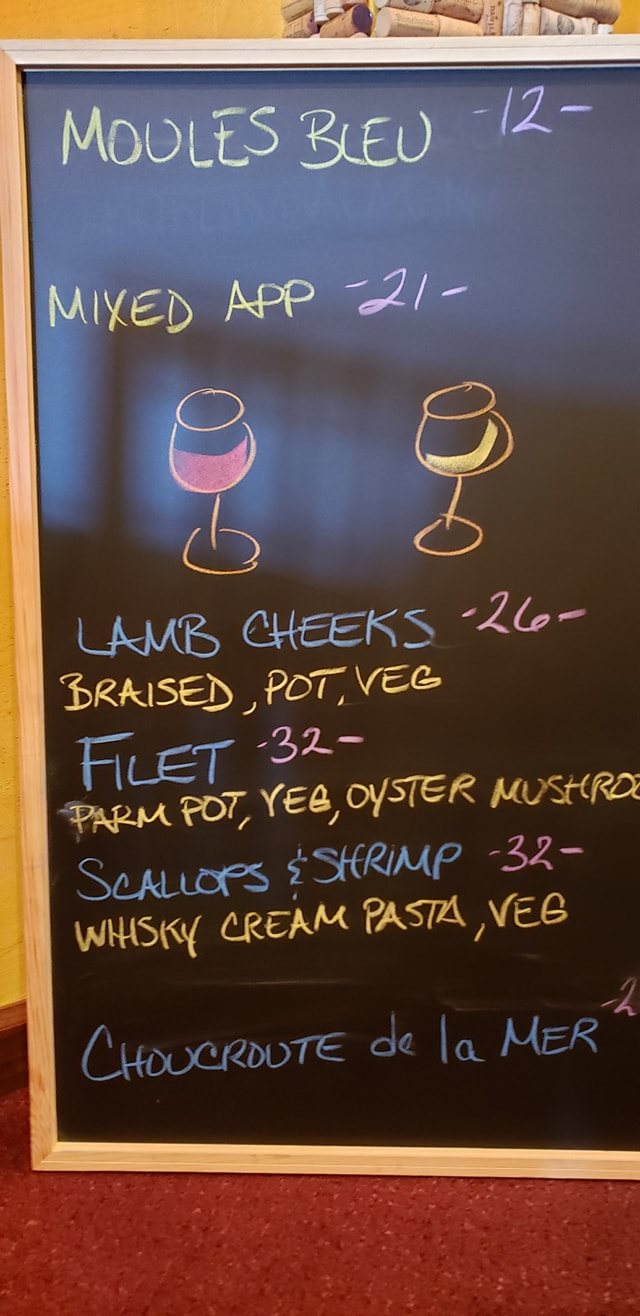 Stonehouse
MOULES BLEU -12-
MIXED APP -21-
LAMB CHEEKS -26-
BRAISED, POT, VEG
FILET -32-
PARM POT, VEG, OYSTER MUSHROO
SCALLOPS & SHRIMP -32-
WHISKY CREAM PASTA, VEG
CHOUCROUTE de la MER -2